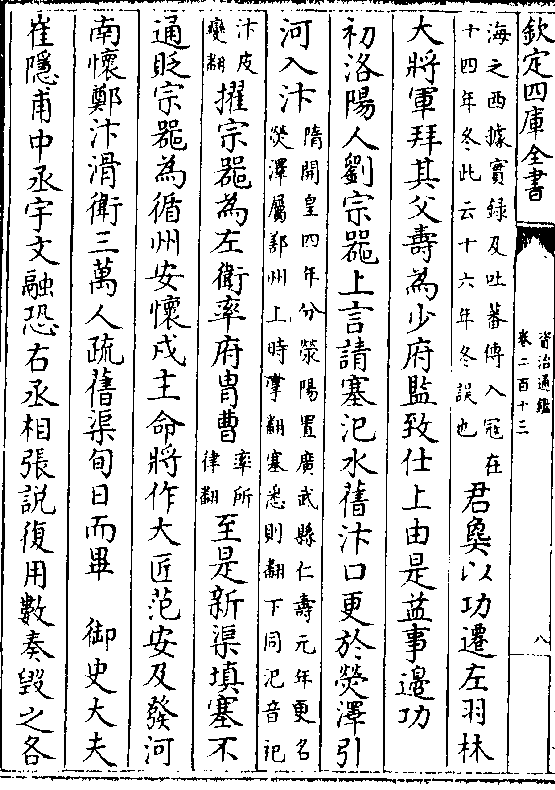 欽定四庫全書
資治通鑑
卷二百十三
八
海之西據實録及吐蕃傳入冦在
十四年冬此云十六年冬誤也
君㚟以功遷左羽林
大將軍拜其父壽為少府監致仕上由是益事邊功
初洛陽人劉宗器上言請塞汜水舊汴口更於熒澤引
河入汴
隋開皇四年分滎陽置廣武縣仁壽元年更名
熒澤屬鄭州上時掌翻塞悉則翻下同汜音祀
汴皮
變翻
擢宗器為左衛率府胄曹
率所
律翻
至是新渠填塞不
通貶宗器為循州安懷戍主命將作大匠范安及發河
南懷鄭汴滑衛三萬人疏舊渠旬日而畢　御史大夫
崔隱甫中丞宇文融恐右丞相張説復用數奏毁之各